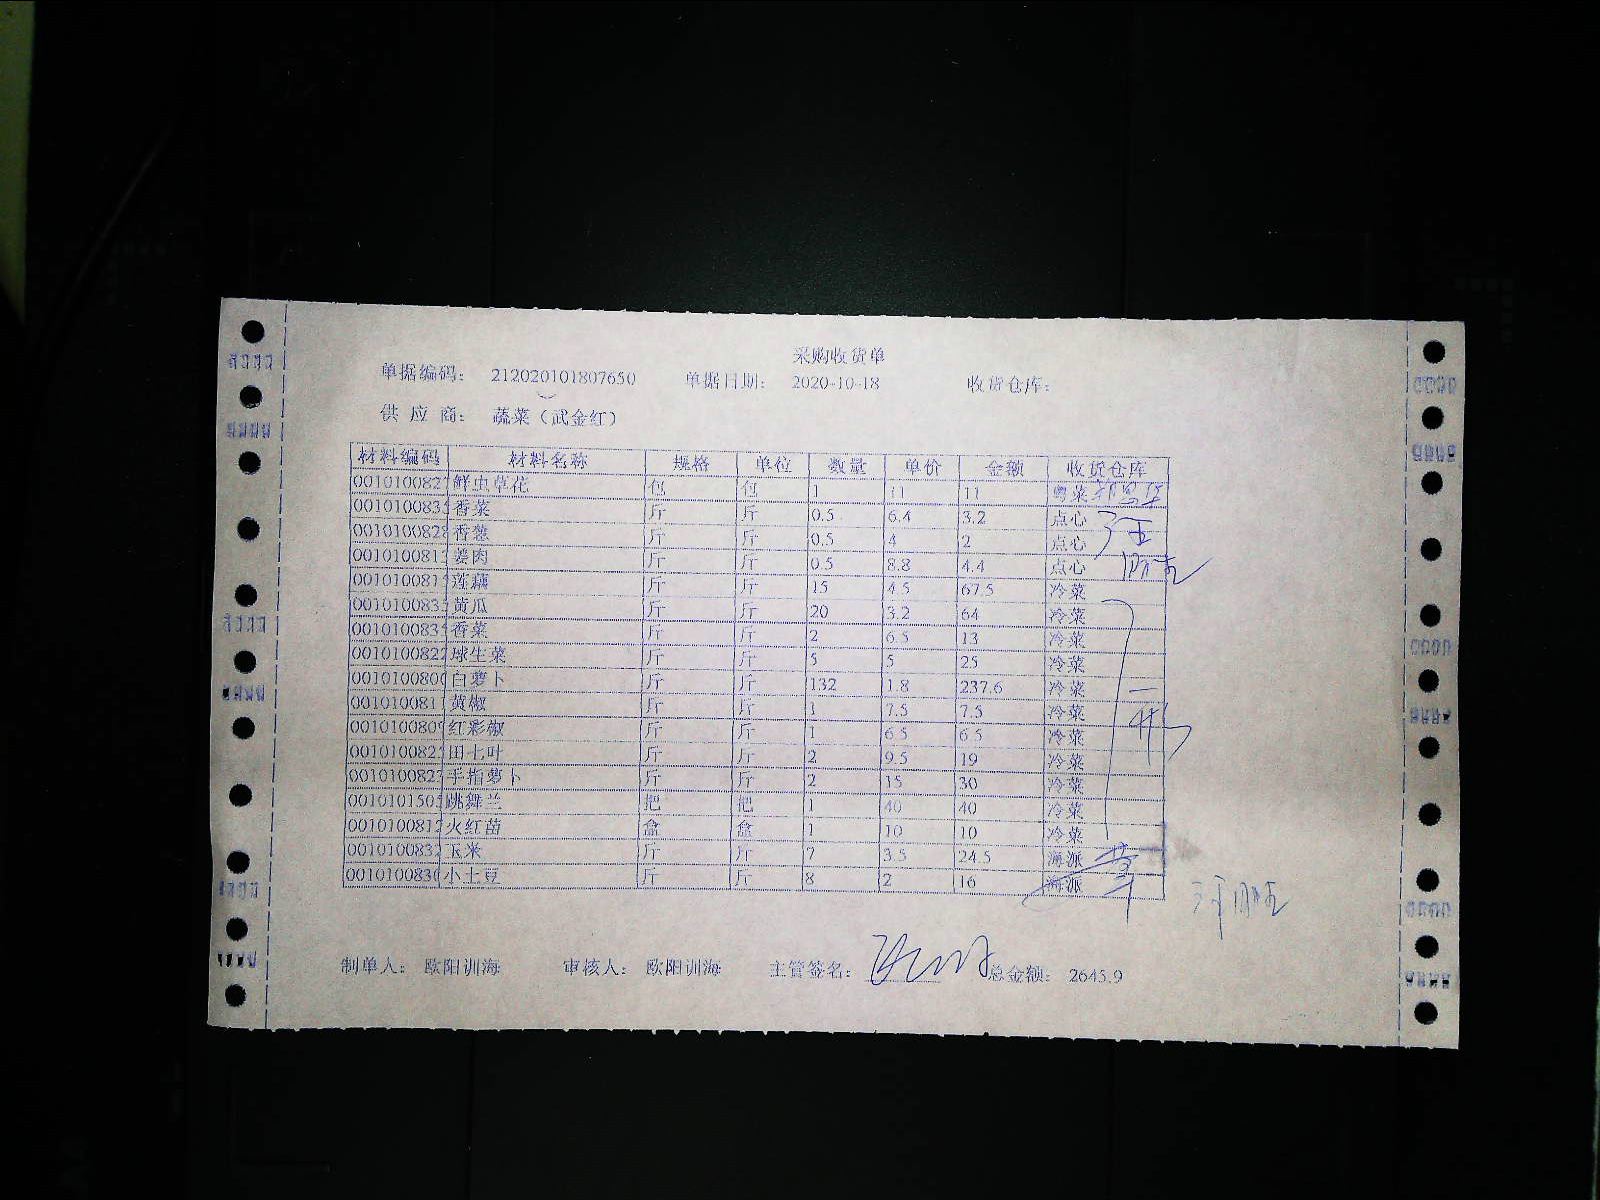 采购收货单
单据编码： 212020101807650 单据日期： 2020-10-18 收货仓库：
供 应 商： 蔬菜（武金红）
材料编码 材料名称 规格 单位 数量 单价 金额 收货仓库
001010082 鲜虫草花 包 包 1 11 11 粤菜
001010083 香菜 斤 斤 0.5 6.4 3.2 点心
001010082 香葱 斤 斤 0.5 4 2 点心
001010081 姜肉 斤 斤 0.5 8.8 4.4 点心
001010081 莲藕 斤 斤 15 4.5 67.5 冷菜
001010083 黄瓜 斤 斤 20 3.2 64 冷菜
001010083 香菜 斤 斤 2 6.5 13 冷菜
001010082 球生菜 斤 斤 5 5 25 冷菜
001010080 白萝卜 斤 斤 132 1.8 237.6 冷菜
001010081 黄椒 斤 斤 1 7.5 7.5 冷菜
001010080 红彩椒 斤 斤 1 6.5 6.5 冷菜
001010082 田七叶 斤 斤 2 9.5 19 冷菜
001010082 手指萝卜 斤 斤 2 15 30 冷菜
001010150 跳舞兰 把 把 1 40 40 冷菜
001010081 火红苗 盒 盒 1 10 10 冷菜
001010083 玉米 斤 斤 7 3.5 24.5 海派
001010083 小土豆 斤 斤 8 2 16 海派
制单人： 欧阳训海 审核人： 欧阳训海 主管签名： 总金额： 2645.9